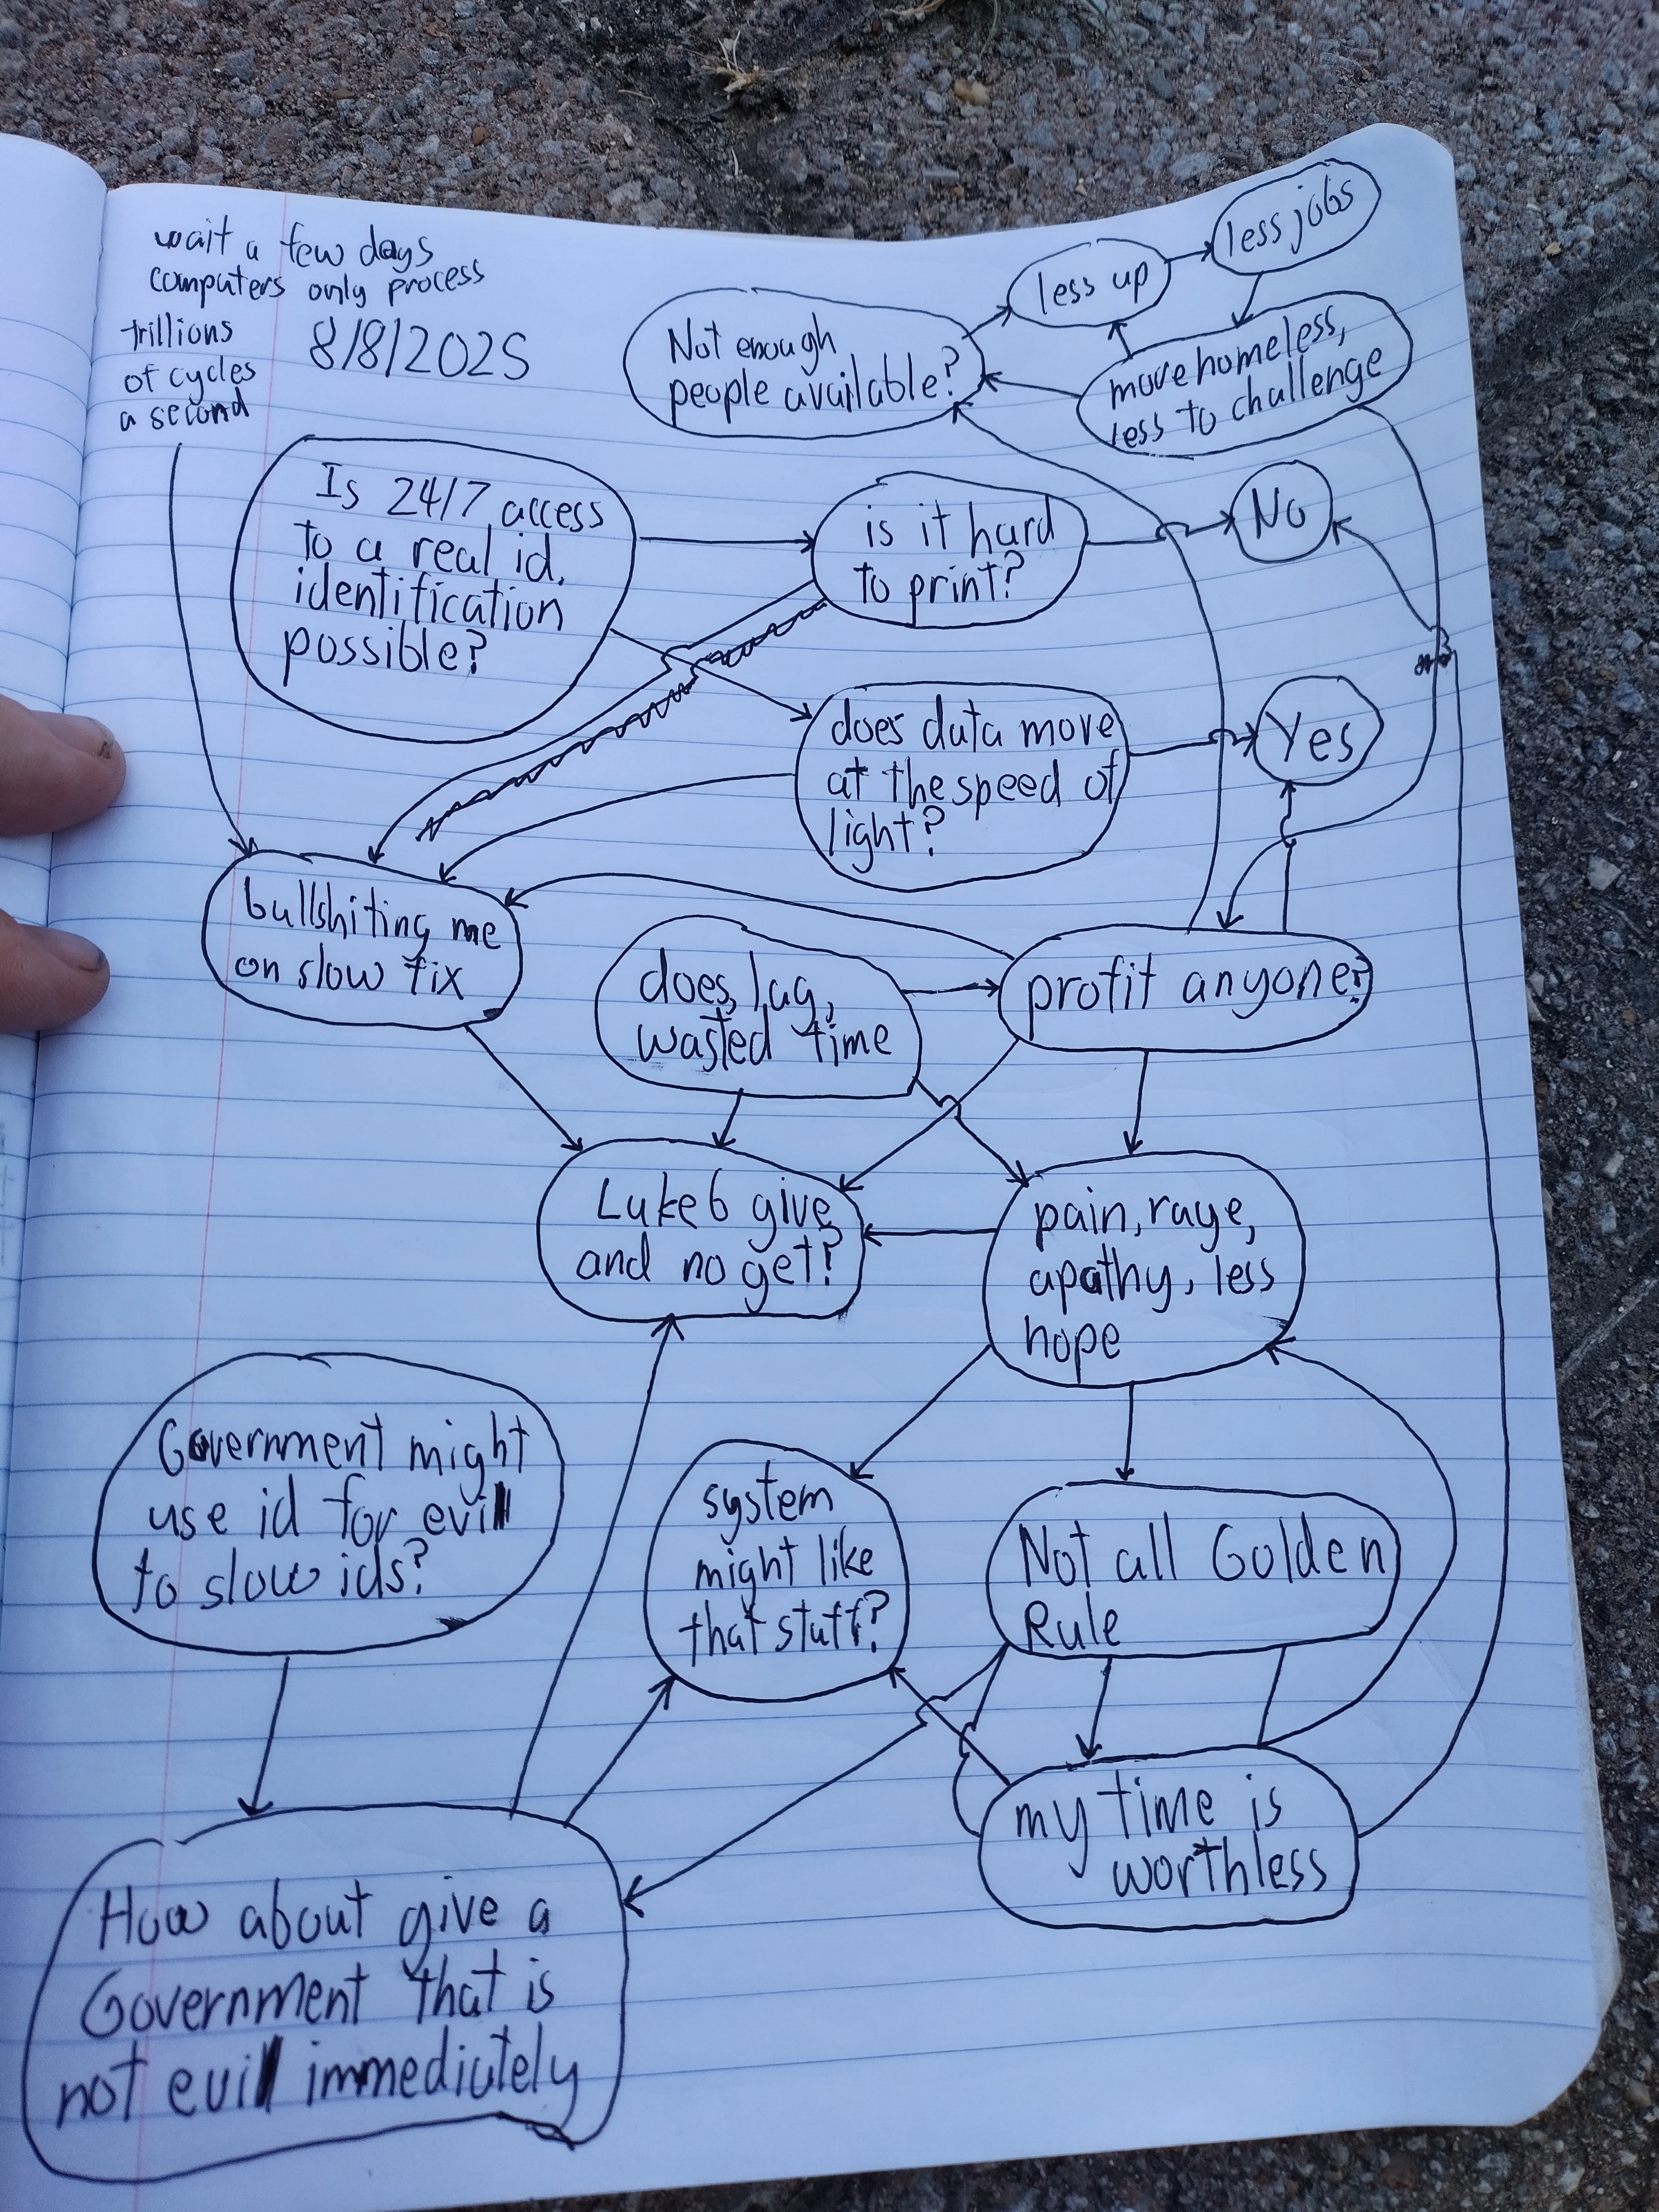 wait a few days
computers only process
trillions
of cycles
a second
8/8/2025
Not enough
people available?
less up
less jobs
move homeless,
less to challenge
Is 24/7 access
to a real id,
identification
possible?
is it hard
to print?
No
does data move
at the speed of
light?
Yes
bullshiting me
on slow fix
does, lag,
wasted time
profit anyone?
Luke6 give
and no get?
pain, rage,
apathy, less
hope
Government might
use id for evil
to slow ids?
system
might like
that stuff?
Not all Golden
Rule
my time is
worthless
How about give a
Government that is
not evil immediately